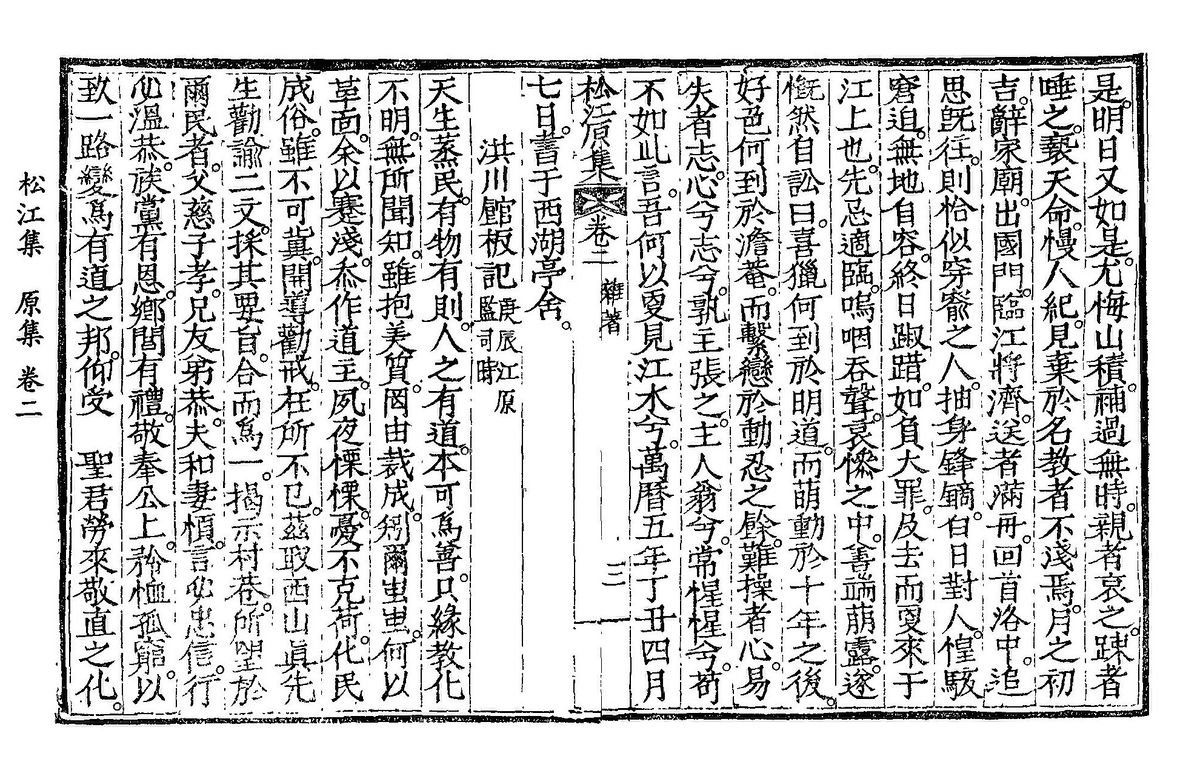 是。明日又如是。尤悔山積。補過無時。親者哀之。踈者
唾之。褻天命。慢人紀。見棄於名敎者不淺焉。月之初
吉。辭家廟。出國門。臨江將濟。送者滿舟。回首洛中。追
思旣往。則恰似穿窬之人。抽身鋒鏑。白日對人。惶駭
窘迫。無地自容。終日踧踖。如負大罪。及去而夏來于
江上也。先忌適臨。嗚咽呑聲。哀慘之中。善端萌露。遂
慨然自訟曰。喜獵何到於明道。而萌動於十年之後。
好色何到於澹菴。而繫戀於動忍之餘。難操者心。易
失者志。心兮志兮。孰主張之。主人翁兮。常惺惺兮。苟
不如此言。吾何以夏見江水兮。萬曆五年丁丑四月
松江原集 卷二 雜著 三
七日。書于西湖亭舍。
洪川館板記 庚辰江原監司時
天生蒸民。有物有則。人之有道。本可爲善。只緣敎化
不明。無所聞知。雖抱美質。罔由裁成。矧爾蚩蚩。何以
革面。余以蹇淺。忝作道主。夙夜慄慄。憂不克荷。化民
成俗。雖不可冀。開導勸戒。在所不已。玆取西山眞先
生勸諭二文。採其要旨。合而爲一。揭示村巷。所望於
爾民者。父慈子孝。兄友弟恭。夫和妻順。言必忠信。行
必溫恭。族黨有恩。鄕閭有禮。敬奉公上。矜恤孤窮。以
致一路變爲有道之邦。仰受 聖君勞來敬直之化。
松江集 原集 卷二